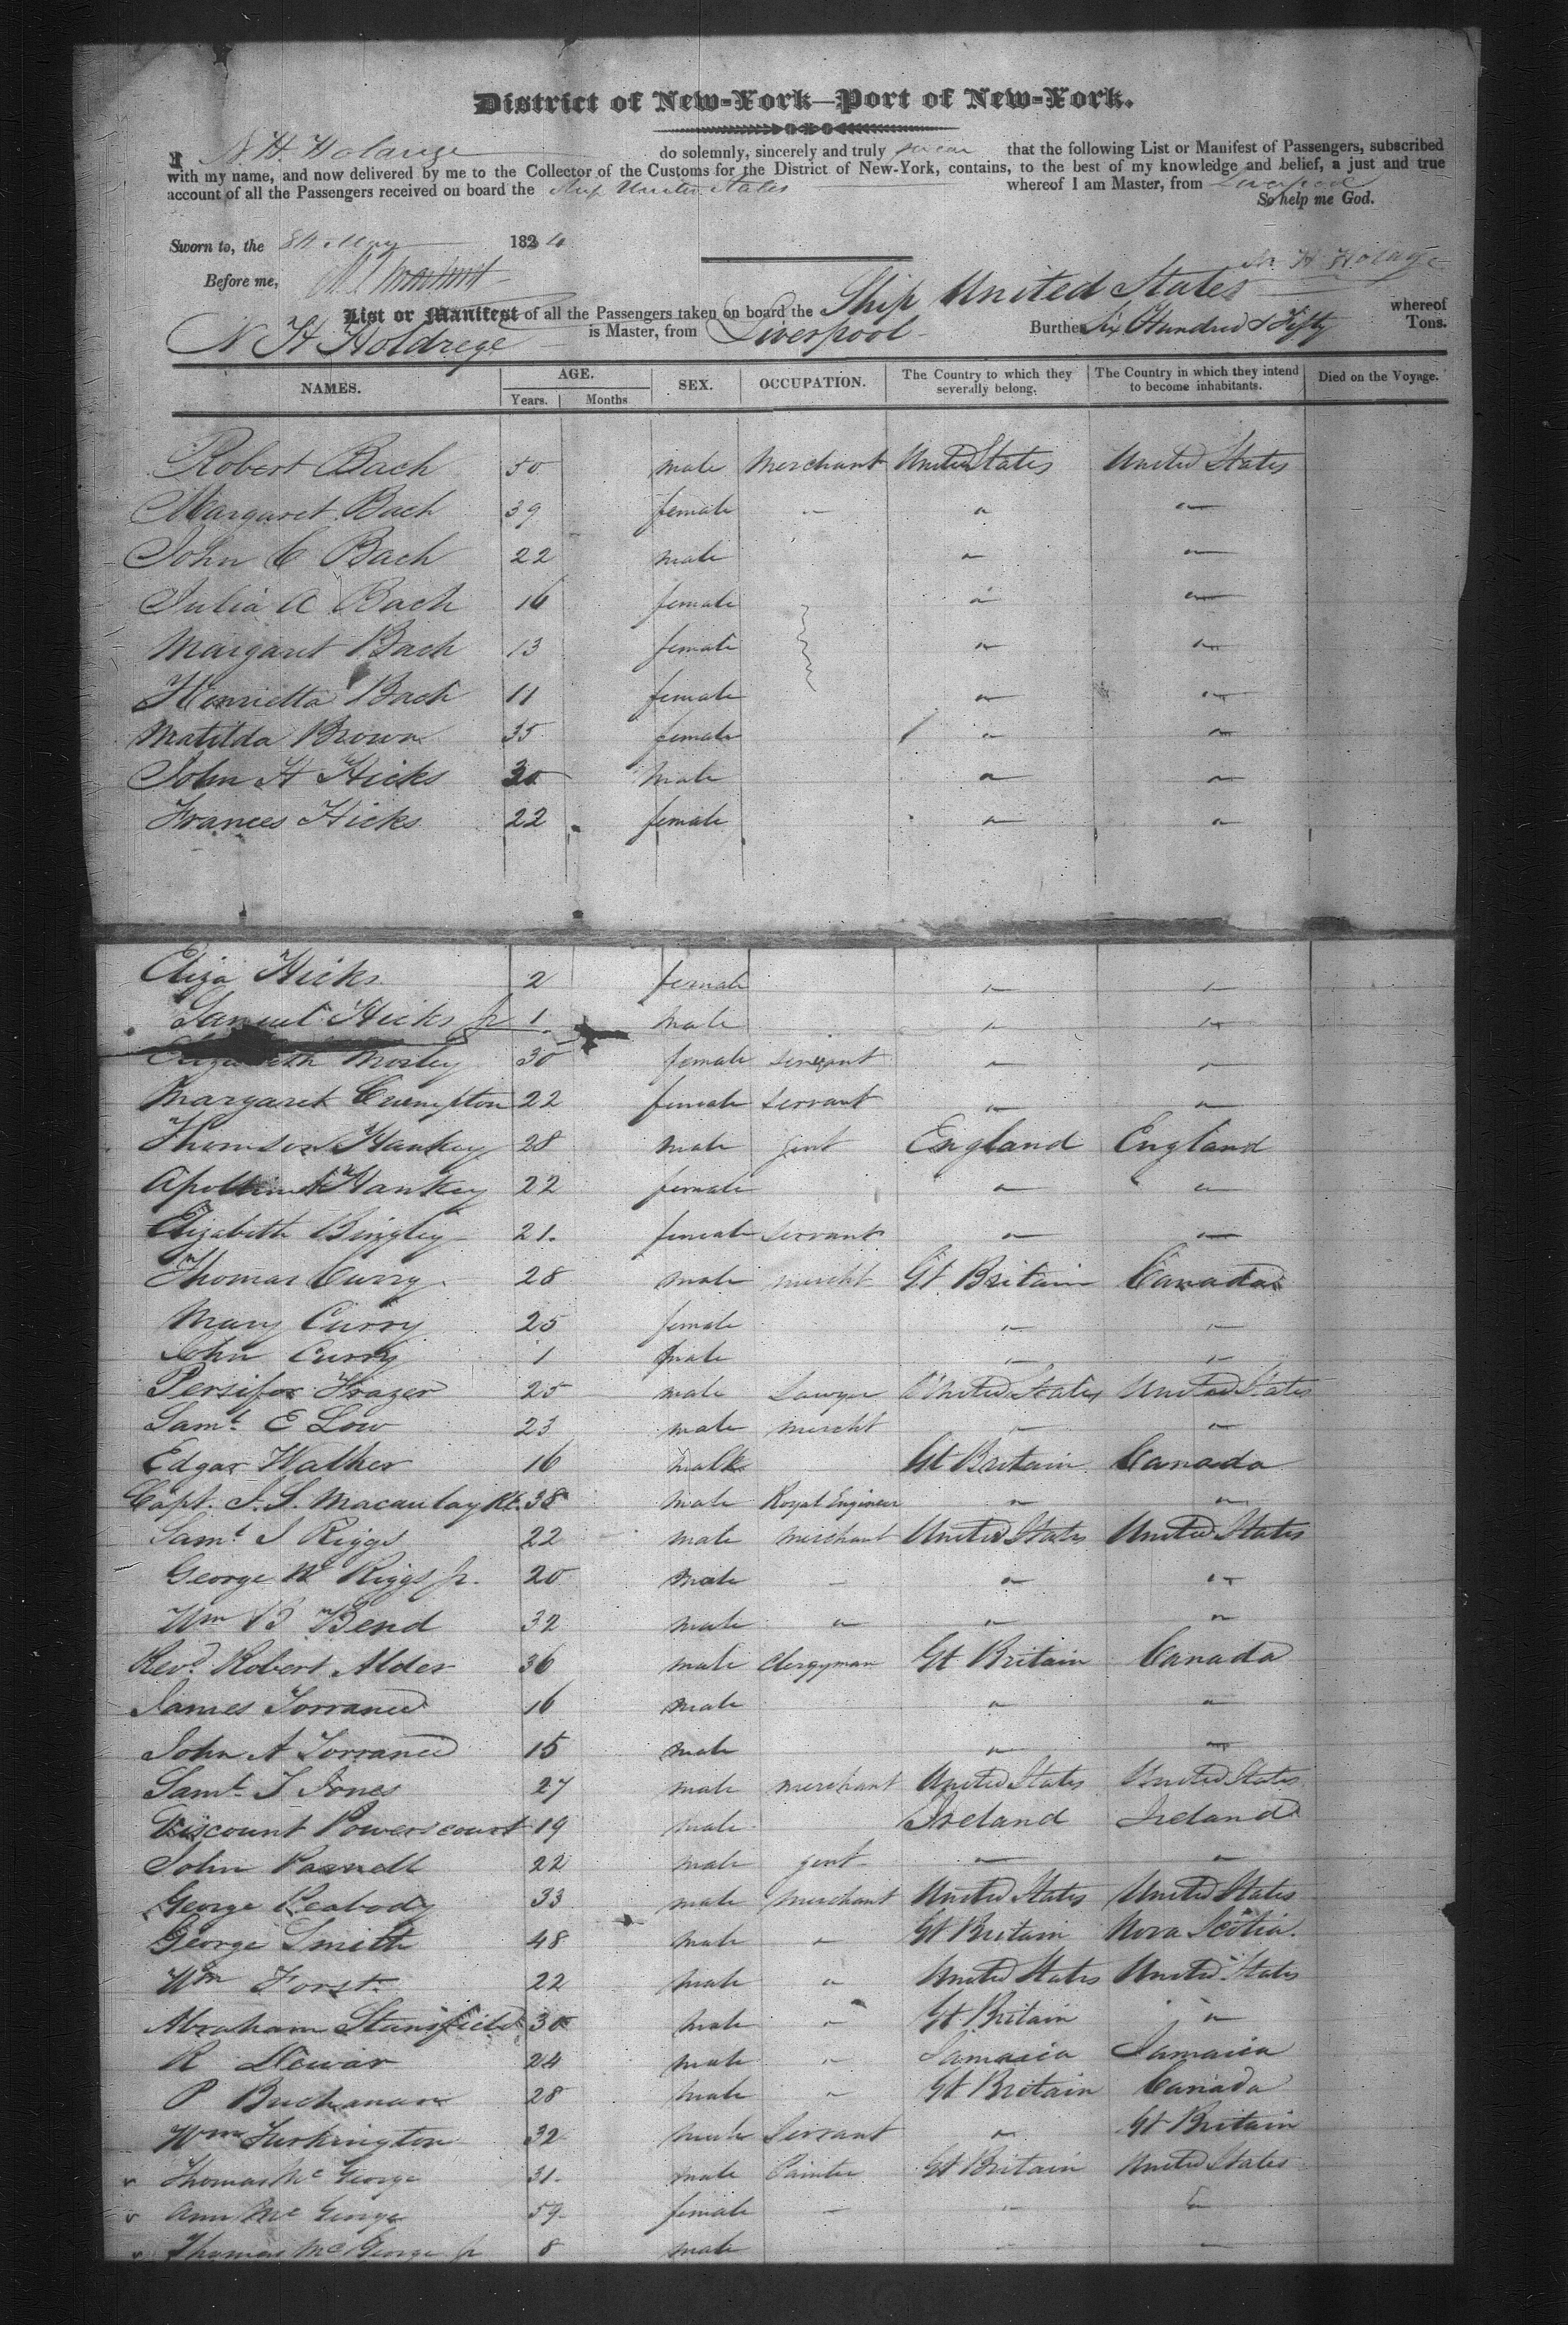 District of New-York—Port of New-York.
I N. H. Holdrege do solemnly, sincerely and truly swear that the following List or Manifest of Passengers, subscribed
with my name, and now delivered by me to the Collector of the Customs for the District of New-York, contains, to the best of my knowledge and belief, a just and true
account of all the Passengers received on board the Ship United States whereof I am Master, from Liverpool
So help me God.
Sworn to, the 8th May 182
Before me,
N. H. Holdrege
List or Manifest of all the Passengers taken on board the Ship United States whereof
N H Holdrege is Master, from Liverpool Burthen Six Hundred & Fifty Tons.
NAMES. AGE. SEX. OCCUPATION. The Country to which they severally belong. The Country in which they intend to become inhabitants. Died on the Voyage.
Years. Months
Robert Bach 50 male Merchant United States United States
Margaret Bach 39 female - " "
John C Bach 22 male " "
Julia A Bach 16 female " "
Margaret Bach 13 female " "
Henrietta Bach 11 female " "
Matilda Brown 35 female " "
John H Hicks 30 male " "
Frances Hicks 22 female " "
Eliza Hicks 2 female " "
Samuel Hicks Jr 1 male " "
Elizabeth Morley 30 female servant " "
Margaret Crumpton 22 female servant " "
Thomson Hankey 28 male gent England England
Hankey 22 female " "
Elizabeth Bingley 21. female servant " "
Thomas Curry 28 male mercht Gt Britain Canada
Mary Curry 25 female " "
John Curry 1 male " "
Persifor Frazer 25 male Lawyer United States United States
Saml. E Low 23 male mercht " "
Edgar Walker 16 male Gt Britain Canada
Capt. J. S. Macaulay 38 male Royal Engineer " "
Saml J Riggs 22 male merchant United States United States
George W Riggs Jr. 20 male - " "
Wm B Bend 32 male " " "
Revd. Robert Alder 36 male Clergyman Gt Britain Canada
James Torrance 16 male " "
John A Torrance 15 male " "
Saml. T Jones 27 male merchant United States United States
Viscount Powerscourt 19 male Ireland Ireland
John Parnell 22 male gent " "
George Peabody 33 male Merchant United States United States
George Smith 48 male " Gt Britain Nova Scotia.
Wm Forst 22 male " United States United States
Abraham Stansfield 30 male " Gt Britain "
R Dewar 24 male " Jamaica Jamaica
P Buchanan 28 male " Gt Britain Canada
Wm Turkington 32 male Servant " Gt Britain
Thomas Mc George 31. male Painter Gt Britain United States
Ann Mc George 59 female - " "
Thomas Mc George Jr 8 male - -